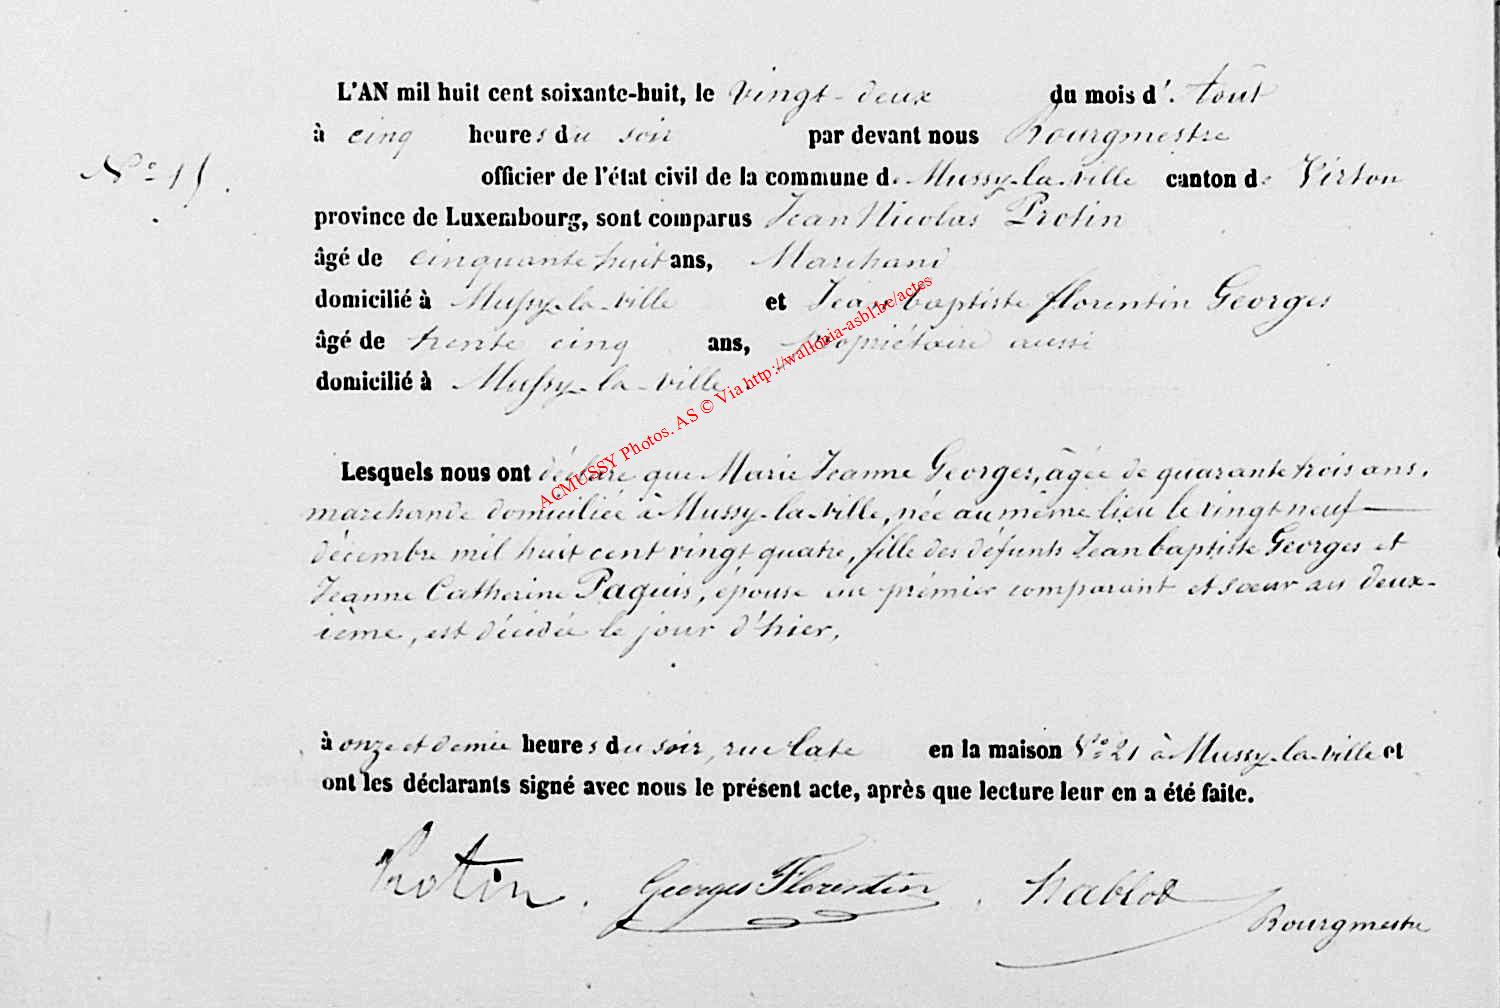 L'AN mil huit cent soixante-huit, le vingt-deux du mois d'. Août
à cinq heures du soir par devant nous Bourgmestre
N° 15.
officier de l'état civil de la commune de Mussy-la-ville canton de Virton
province de Luxembourg, sont comparus Jean Nicolas Protin
âgé de cinquante huit ans, Marchand
domicilié à Mussy-la-ville et Jean baptiste florentin Georges
âgé de trente cinq ans, propriétaire aussi
domicilié à Mussy-la-ville.
ACMUSSY Photos. AS © Via http://wallonia-asbl.be/actes
Lesquels nous ont déclaré que Marie Jeanne Georges, âgée de quarante trois ans,
marchande domiciliée à Mussy-la-ville, née au même lieu le vingt neuf
décembre mil huit cent vingt quatre, fille des défunts Jean baptiste Georges et
Jeanne Catherine Paquis, épouse du prémier comparant et sœur du deux-
ième, est décédée le jour d'hier,
à onze et demie heures du soir, rue late en la maison N° 21 à Mussy-la-ville et
ont les déclarants signé avec nous le présent acte, après que lecture leur en a été faite.
Protin. Georges Florentin. Hablot
Bourgmestre